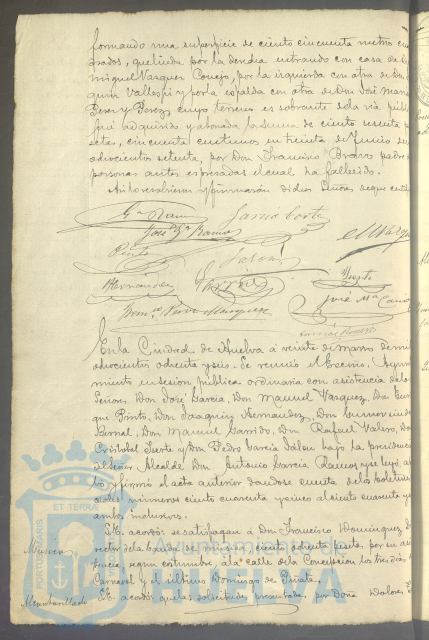 formando una superficie de ciento cincuenta metros cua
drados, que linda por la derecha entrando con casa de D.
Miguel Vazquez Conejo, por la izquierda con otra de Don
quin Vallespi y por la espalda con otra de Don José Maria
Perez y Perez, cuyo terreno es sobrante de la via públi
fué adquirido y abonada la suma de ciento sesenta
setas, cincuenta centimos en treinta de Junio de
ochocientos setenta, por Don Francisco Bravo padre de
personas antes espresadas el cual ha fallecido.
Asi lo resolvieron y firmarán dichos Señores de que certi
Ga Ramos
Garcia Cortes
José Ga Ramos
el Marq
Pinto
Jalon
Hernandez
Garrido
Suerto
José Ma Cano
Perez Marquez
En la Ciudad de Huelva á veinte de marzo de mil
ochocientos ochenta y seis. Se reunió el Excmo. Ayunta
miento en sesion pública ordinaria con asistencia de los
Señores Don José Garcia, Don Manuel Vazquez, Don
que Pinto, Don Joaquin Hernandez, Don
Bernal, Don Manuel Garrido, Don Rafael Valero, Don
Cristobal Suerto y Don Pedro Garcia Jalon bajo la presidencia
del Señor Alcalde Don Antonio Garcia Ramos y se leyó
bó y firmó el acta anterior dandose cuenta de los boletines
ciales números ciento cuarenta y cinco al ciento cuarenta y
ambos inclusives.
Música
Se acordó se satisfagan a Don Francisco Dominguez
rector de la banda de música, ciento ochenta pesetas, por su asis
tencia, segun costumbre, a la calle de la Concepcion los tres dias
Carnaval y el último Domingo de Piñata.
Alcantarillado
Se acordó que las solicitudes presentadas, por Doña Dolores
PORTUS MARIS ET TERRAE
Ayuntamiento de
HUELVA